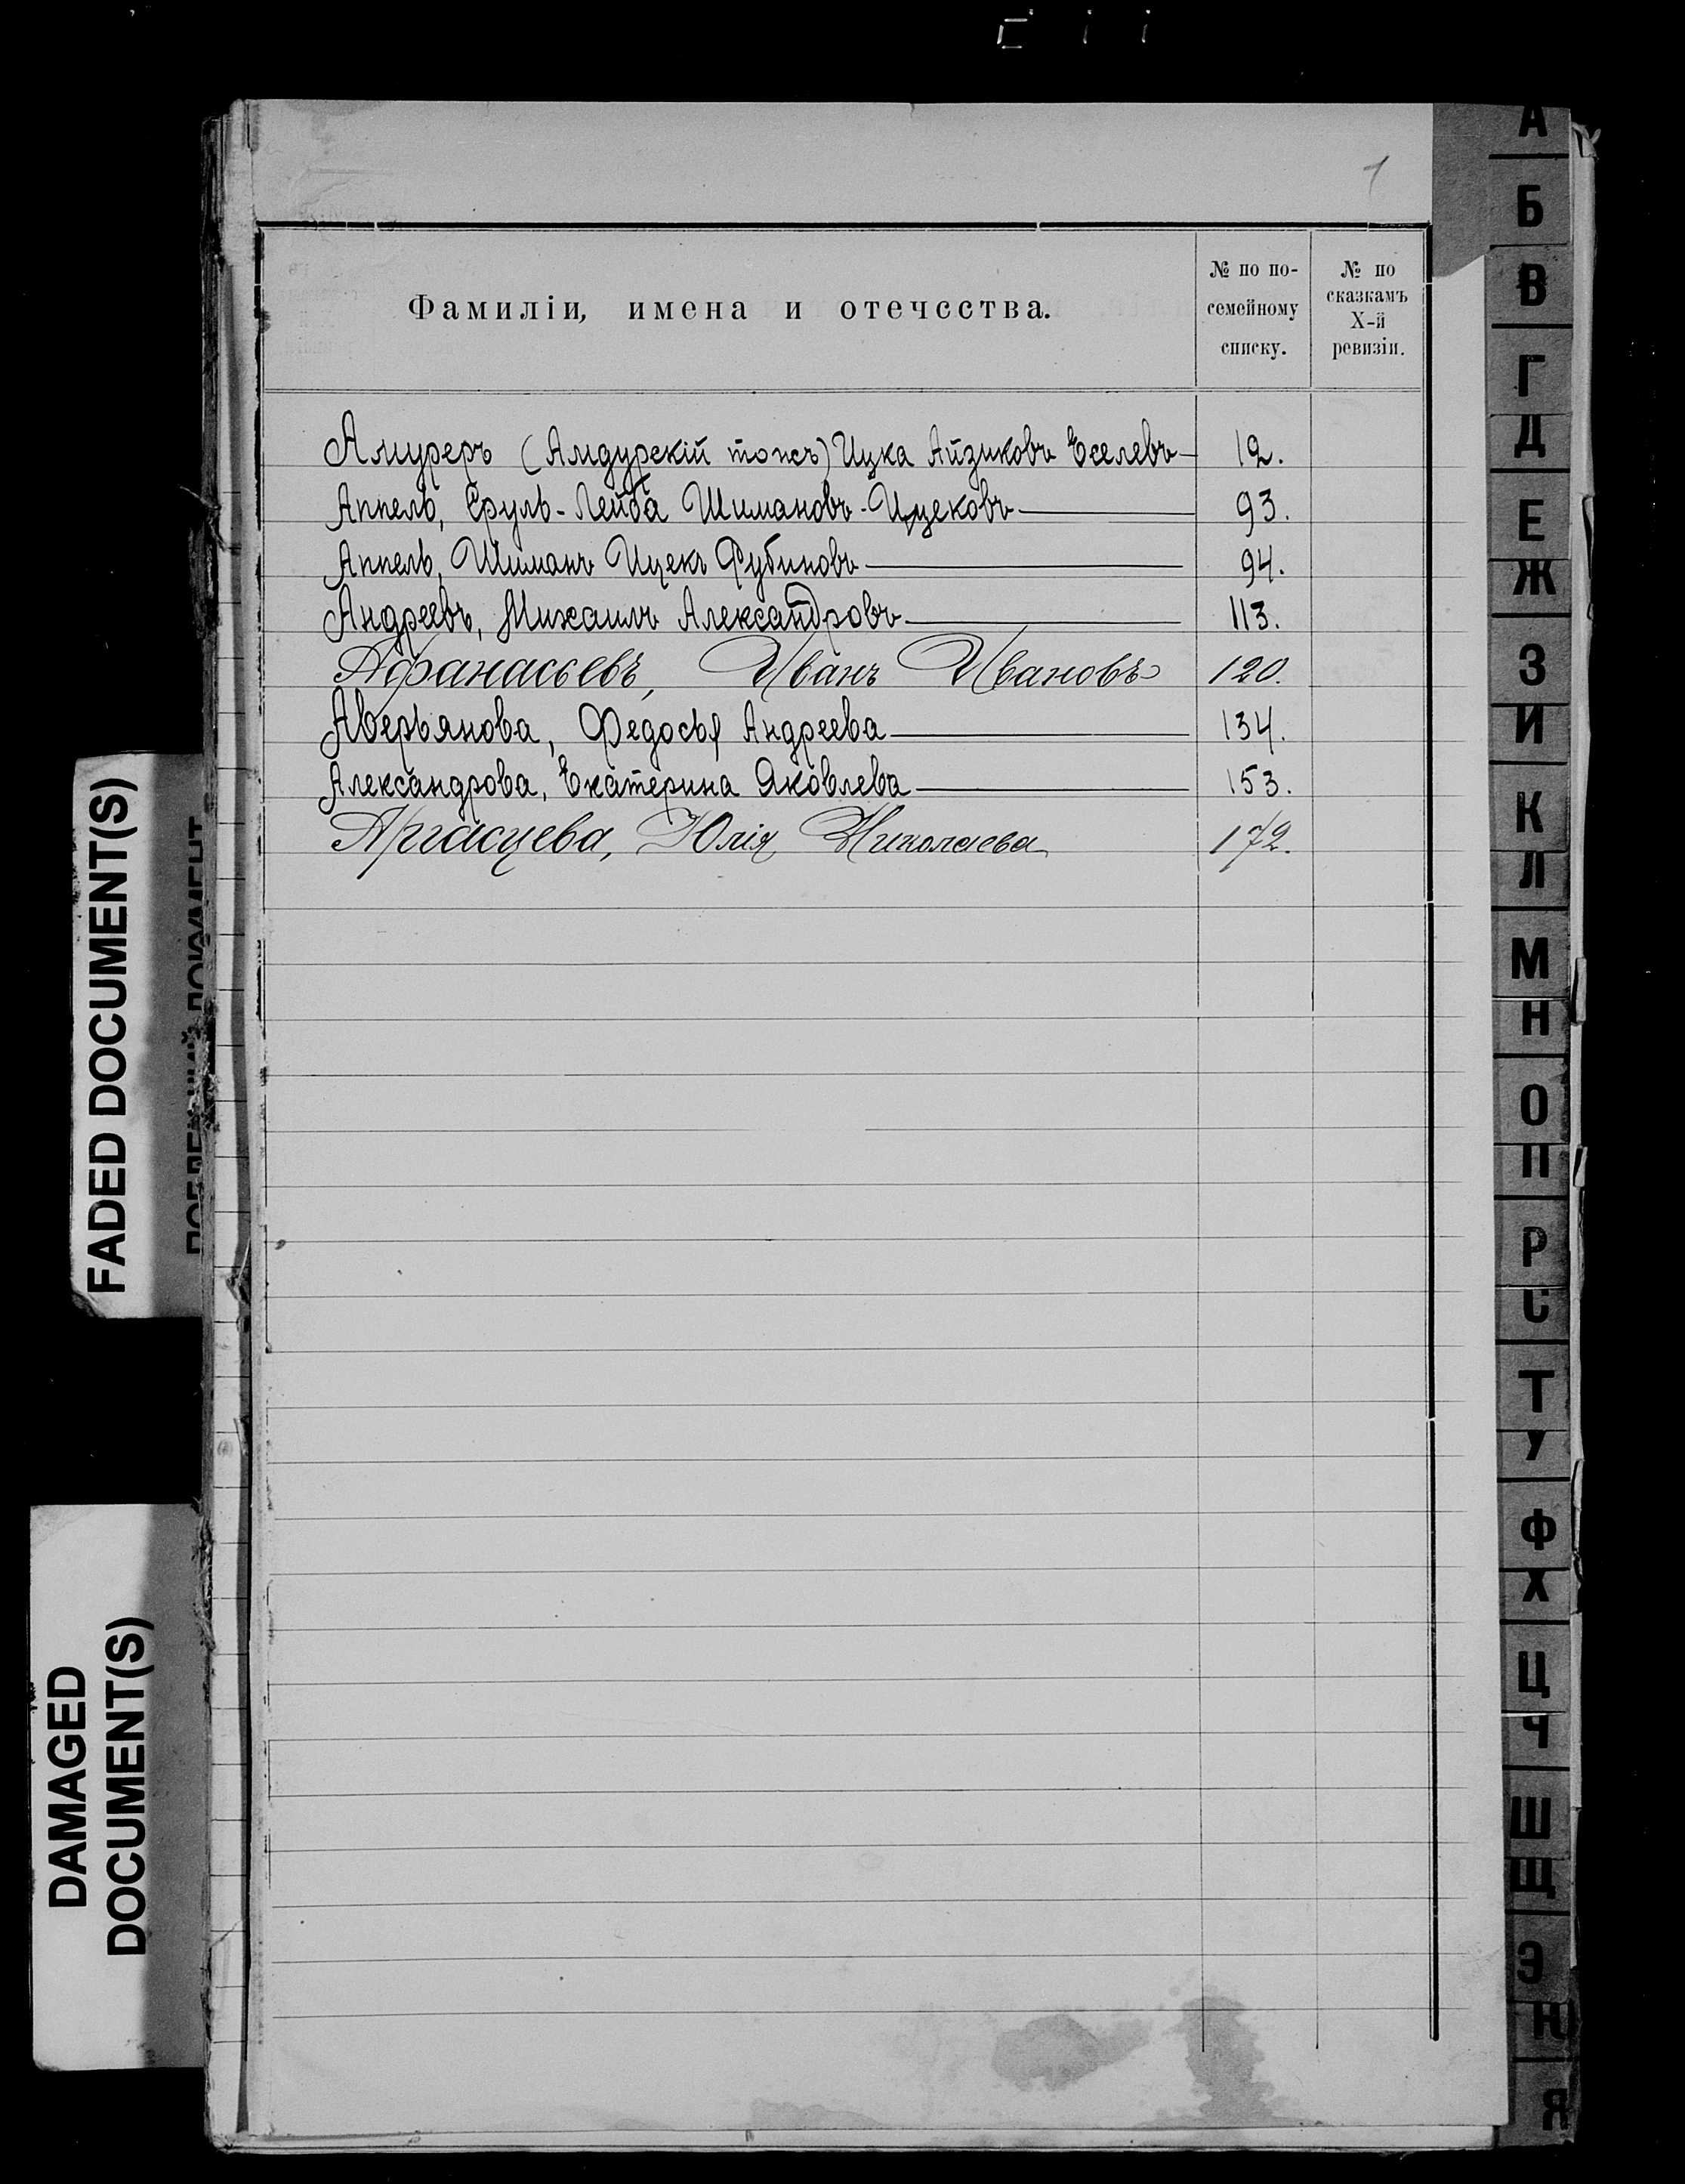 1
Фамиліи, имена и отечества.
№ по по-
семейному
списку.
№ по
сказкамъ
X-й
ревизіи.
Амуреръ (Амдурскій тожъ) Ицка Айзиковъ Еселевъ 12.
Аппель, Сруль-Лейба Шимановъ-Ицековъ 93.
Аппель, Шиманъ Ицекъ Рубиновъ 94.
Андреевъ, Михаилъ Александровъ 113.
Афанасьевъ, Иванъ Ивановъ 120.
Аверьянова, Федосья Андреева 134.
Александрова, Екатерина Яковлева 153.
Юлія Николаева 172.
А
Б
В
Г
Д
Е
Ж
З
И
К
Л
М
Н
О
П
Р
С
Т
У
Ф
Х
Ц
Ч
Ш
Щ
Э
Ю
Я
FADED DOCUMENT(S)
DAMAGED
DOCUMENT(S)